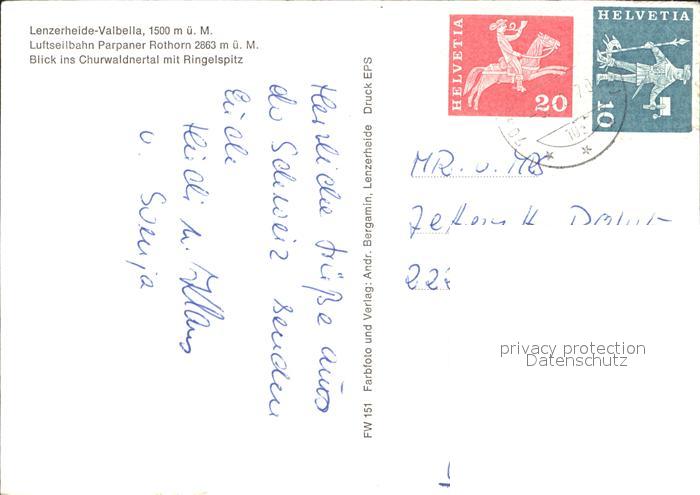 Lenzerheide-Valbella, 1500 m ü. M.
Luftseilbahn Parpaner Rothorn 2863 m ü. M.
Blick ins Churwaldnertal mit Ringelspitz
Herzliche Grüße aus
der Schweiz senden
Euch
Heidi u. Klaus
u. Svenja
FW 151 Farbfoto und Verlag: Andr. Bergamin, Lenzerheide Druck EPS
HELVETIA
20
HELVETIA
10
MR. u. MRS
22
privacy protection
Datenschutz